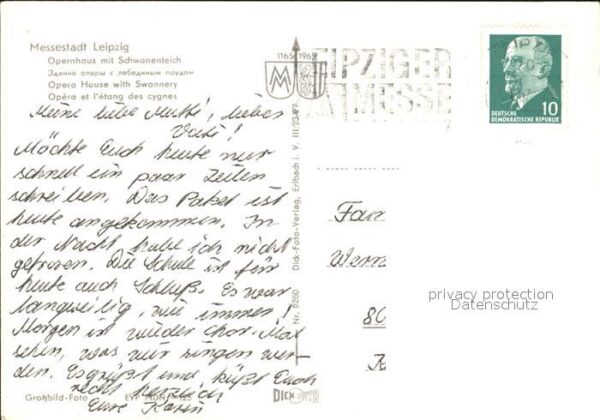 Messestadt Leipzig
Opernhaus mit Schwanenteich
Здание оперы с лебединым прудом
Opera House with Swannery
Opéra et l'étang des cygnes
Meine liebe Mutti, lieber
Vati!
Möchte Euch heute nur
schnell ein paar Zeilen
schreiben. Das Paket ist
heute angekommen. In
der Nacht habe ich nicht
gefroren. Die Schule ist für
heute auch Schluß. Es war
langweilig, wie immer!
Morgen ist wieder Chor. Mal
sehen, was wir singen wer-
den. Es grüßt und küßt Euch
recht herzlich
Eure Karin
Großbild-Foto
EVP MDN
Nr. 6260 Dick-Foto-Verlag, Erlbach i. V. III/20/97
DICK
1165 1965
M M
LEIPZIGER
MESSE
10
DEUTSCHE
DEMOKRATISCHE REPUBLIK
Fam
Wern
80
privacy protection
Datenschutz